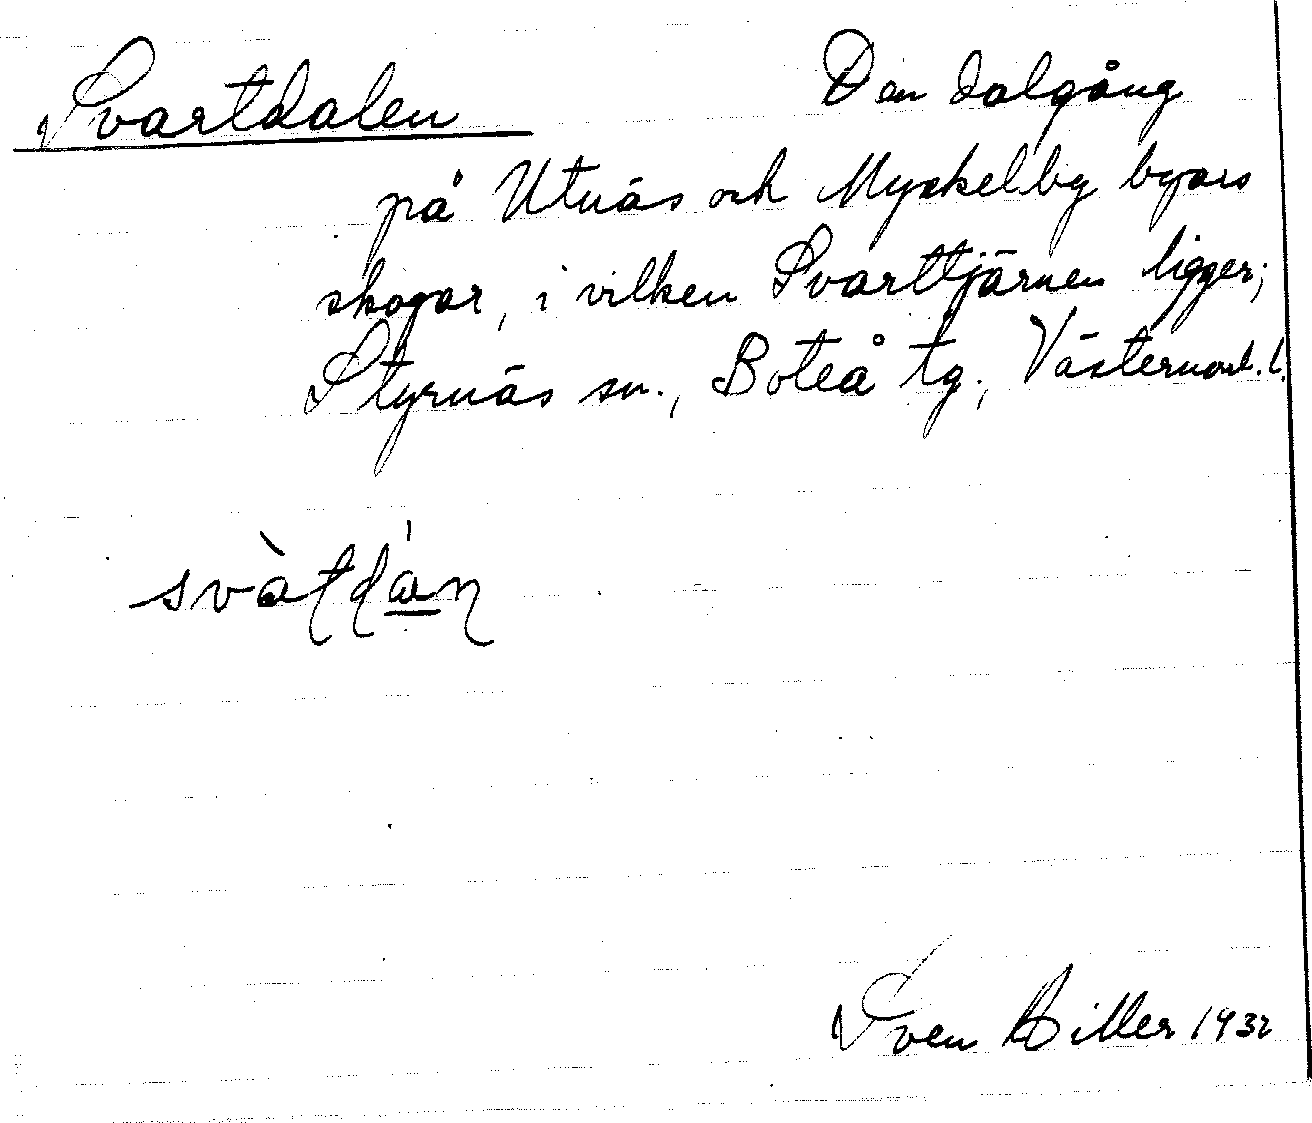 Svartdalen
Den dalgång
på Utnäs och Myckelby byars
skogar, i vilken Svarttjärnen ligger;
Styrnäs sn., Boteå tg., Västernorl. l.
svàtdán
Sven Hiller 1932